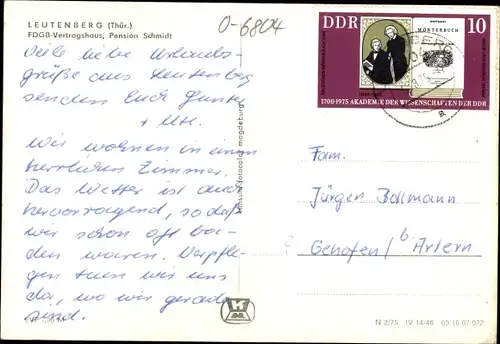 LEUTENBERG (Thür.)
FDGB-Vertragshaus, Pension Schmidt
O-6804
Viele liebe Urlaubs-
grüße aus Leutenberg
senden Euch Gunter
+ Ute.
Wir wohnen in einem
herrlichen Zimmer.
Das Wetter ist auch
hervorragend, so daß
wir schon oft ba-
den waren. Verpfle-
gen tuen wir uns
da, wo wir gerade
sind.
magdeburg
DDR
WÖRTERBUCH
10
1700-1975 AKADEMIE DER WISSENSCHAFTEN DER DDR
Fam.
Jürgen Bollmann
Gehofen / b. Artern
N 2/75 IV-14-48 05 10 07 022